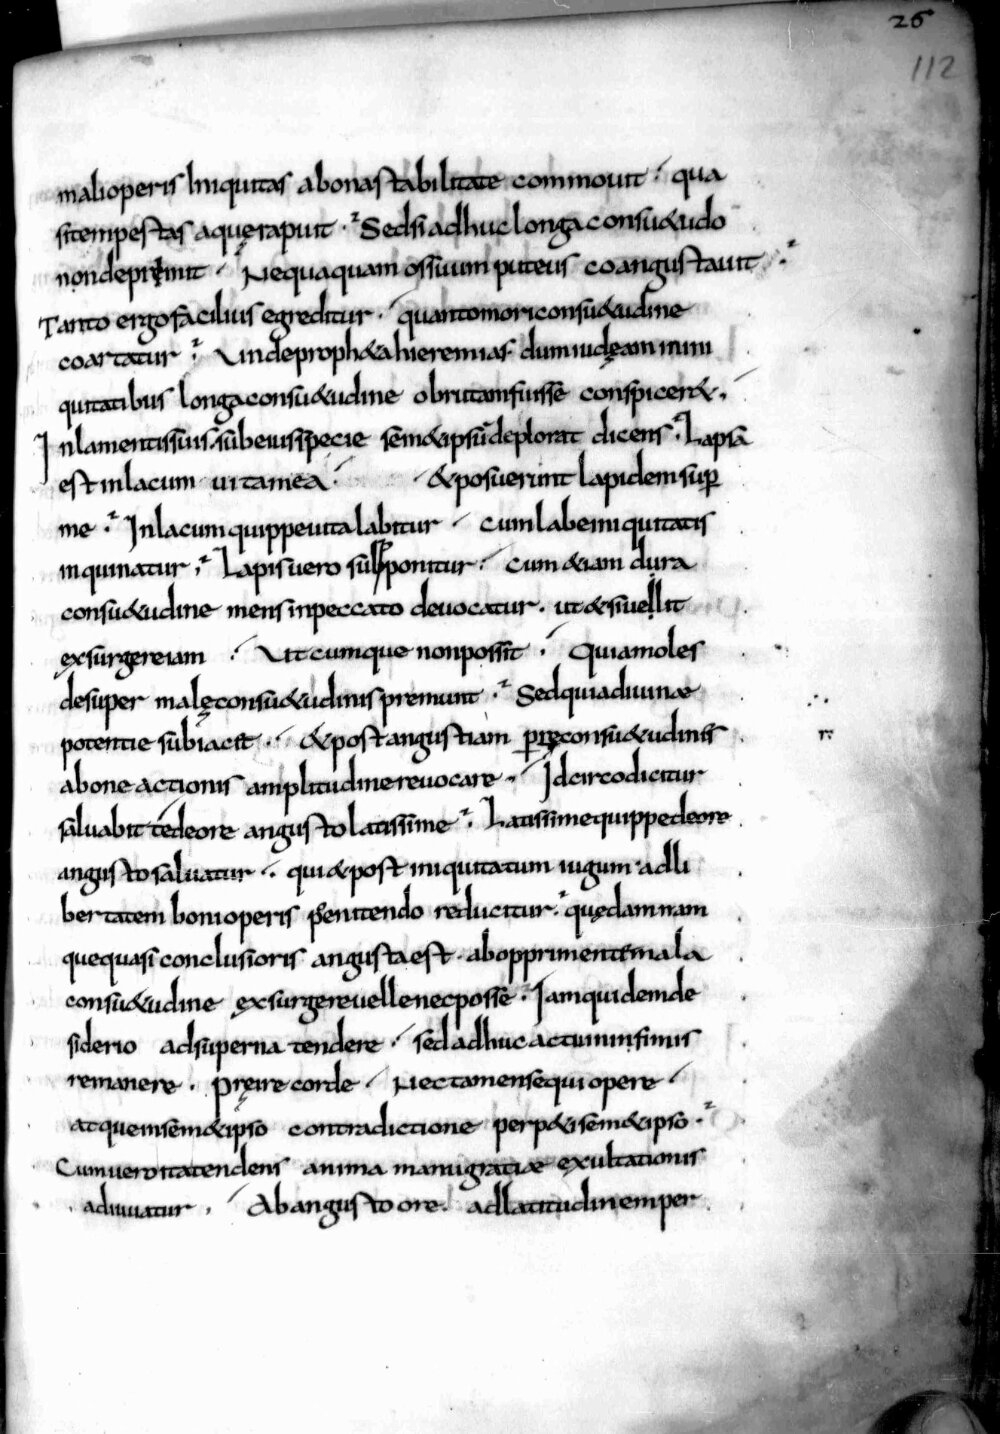 26
112
malioperis Iniquitas abonastabilitate commouit · qua
sitempestas aquęrapuit · Sedsi adhuc longa consu&udo
nondeprimit · Nequaquam ossuum puteus coangustauit ·
Tanto ergofacilius egreditur · quantomoriconsu&udine
coartatur · Vndeproph&ahieremias · dumiudęamınını
quitatibus longaconsu&udine obrutamfuisse conspicer& ·
Inlamentissuis · subeiusspecie sem&ipsū deplorat dicens · Lapsa
est inlacum uitamea · &posuerunt lapidem sup
me · Inlacum quippeuita labitur · cumlabeiniquitatis
inquinatur · Lapisuero suppponitur · cum &iam dura
consu&udine mens inpeccato deuocatur · ut&siuellit
exsurgereiam · Vtcumque nonpossit · Quiamoles
desuper malęconsu&udinis premunt · Sedquiadiuinæ
potentie subiacit · &postangustiam pręconsu&udinis
abone actionis amplitudinereuocare · Idcircodicitur
saluabit tedeore angusto latissime · Latissimequippedeore
angusto saluatur · qui&post iniquitatum iugum adli
bertatem bonioperis penitendo reducitur · quędamnam
quequasi conclusioris angustaest · abopprimentemala
consu&udine exsurgereuellenecposse · Iamquidemde
siderio adsuperna tendere · sed adhuc actuininfimis
remanere · pręire corde · Nectamensequi opere ·
atqueinsem&ipso contradictione perp&isem&ipso ·
Cumueroitatendens anima manugratiæ exultationis
adiuuatur · Abangusto ore · adlatitudinemper